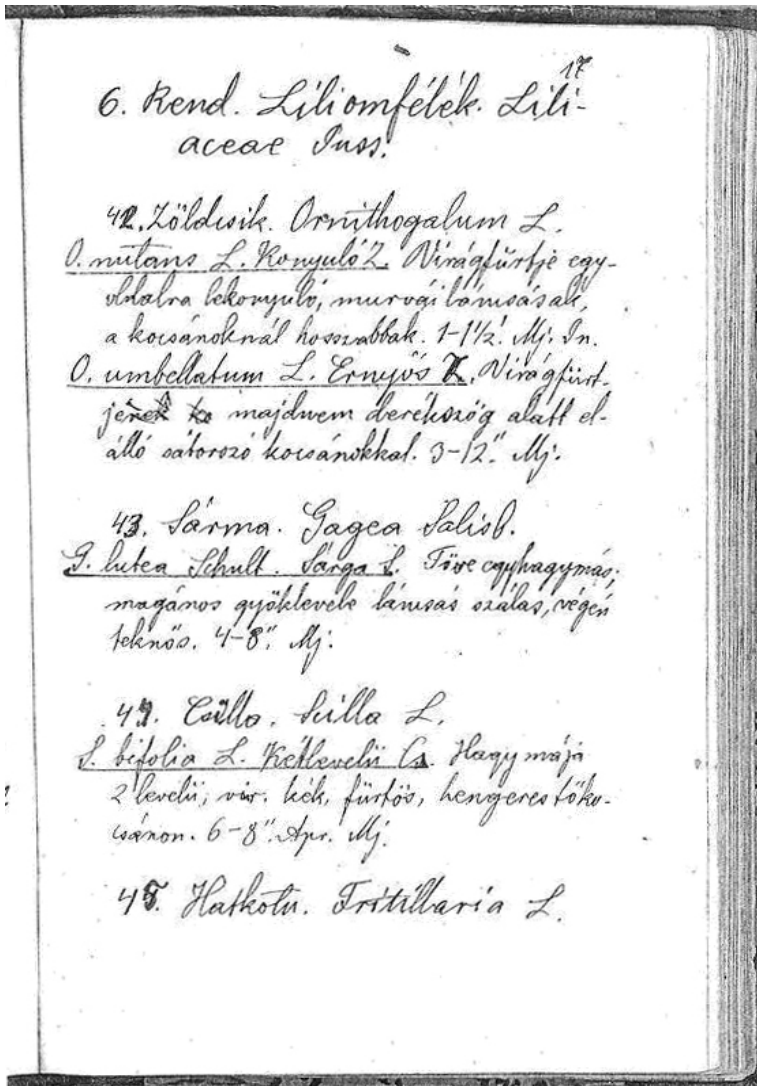 17
6. Rend. Liliomfélék. Lili-
aceae Juss.
42. Zöldcsik. Ornithogalum L.
O. nutans L. Konyuló Z. Virágfürtje egy-
oldalra lekonyuló, murvái láncsásak,
a kocsánoknál hosszabbak. 1-1½'. Mj. Jn.
O. umbellatum L. Ernyős Z. Virágfürt-
je majdnem derékszög alatt el-
álló sátorozó kocsánokkal. 3-12". Mj.
43. Sárma. Gagea Salisb.
G. lutea Schult. Sárga S. Töve egyhagymás;
magános gyöklevele láncsás szálas, végén
teknős. 4-8". Mj.
44. Csilla. Scilla L.
S. bifolia L. Kétlevelü Cs. Hagymája
2 levelü; vir. kék, fürtös, hengeres tőko-
csánon. 6-8". Apr. Mj.
45. Hatkotu. Fritillaria L.